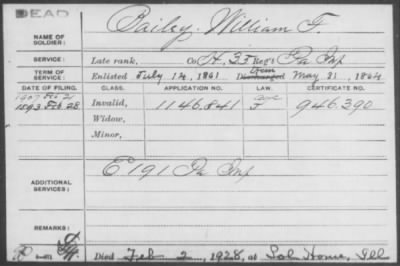 DEAD
NAME OF SOLDIER: Bailey, William F.
SERVICE: Late rank, Co. H, 33 Reg't Pa Inf
TERM OF SERVICE: Enlisted July 14, 1861 Discharged May 21, 1864
DATE OF FILING. CLASS. APPLICATION NO. LAW. CERTIFICATE NO.
1907 Feb 21
1893 Feb 28 Invalid, 1146.841 946.390
Widow,
Minor,
ADDITIONAL SERVICES: E 191 Pa Inf
REMARKS:
Died Feb 2, 1928, at Sol Home, Ill